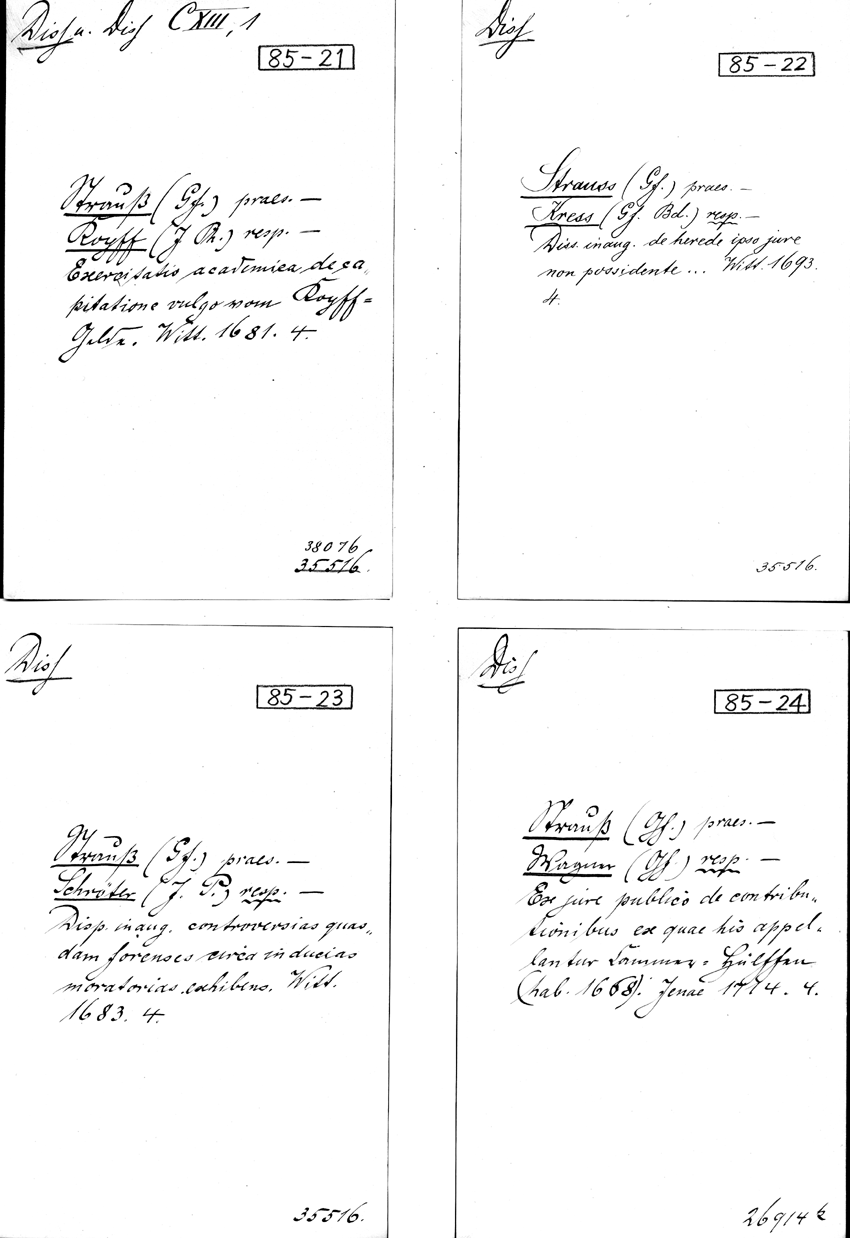 Diss u. Diss CXIII, 1
85-21
Strauß (Gf.) praes. —
Kopff (J Ph.) resp. —
Exercitatio academica de ca„
pitatione vulgo vom Kopff=
Gelde. Witt. 1681. 4.
38076
35516.
Diss
85-22
Strauss (Gf.) praes. —
Kress (Gf. Bd.) resp. —
Diss. inaug. de herede ipso jure
non possidente... Witt. 1693.
4.
35516.
Diss
85-23
Strauß (Gf.) praes. —
Schröter (J. P.) resp. —
Disp. inaug. controversias quas„
dam forenses circa inducias
moratorias exhibens. Witt.
1683. 4.
35516.
Diss
85-24
Strauß (Gf.) praes. —
Wagner (Gf.) resp. —
Ex jure publico de contribu„
tionibus ex quae his appel„
lantur Cammer= Hülffen
(hab. 1668). Jenae 1774. 4.
26914 k